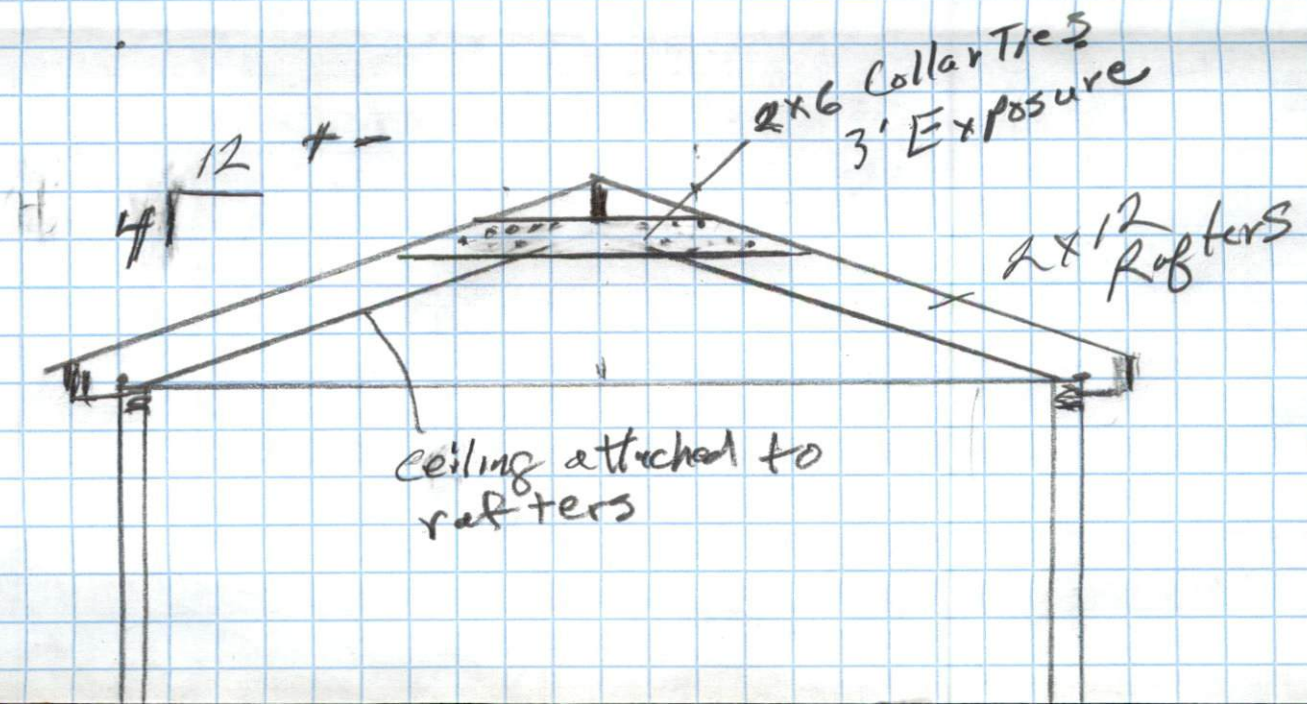 2x6 Collar Ties
3' Exposure
12 + -
4
2x12
Rafters
ceiling attached to
rafters